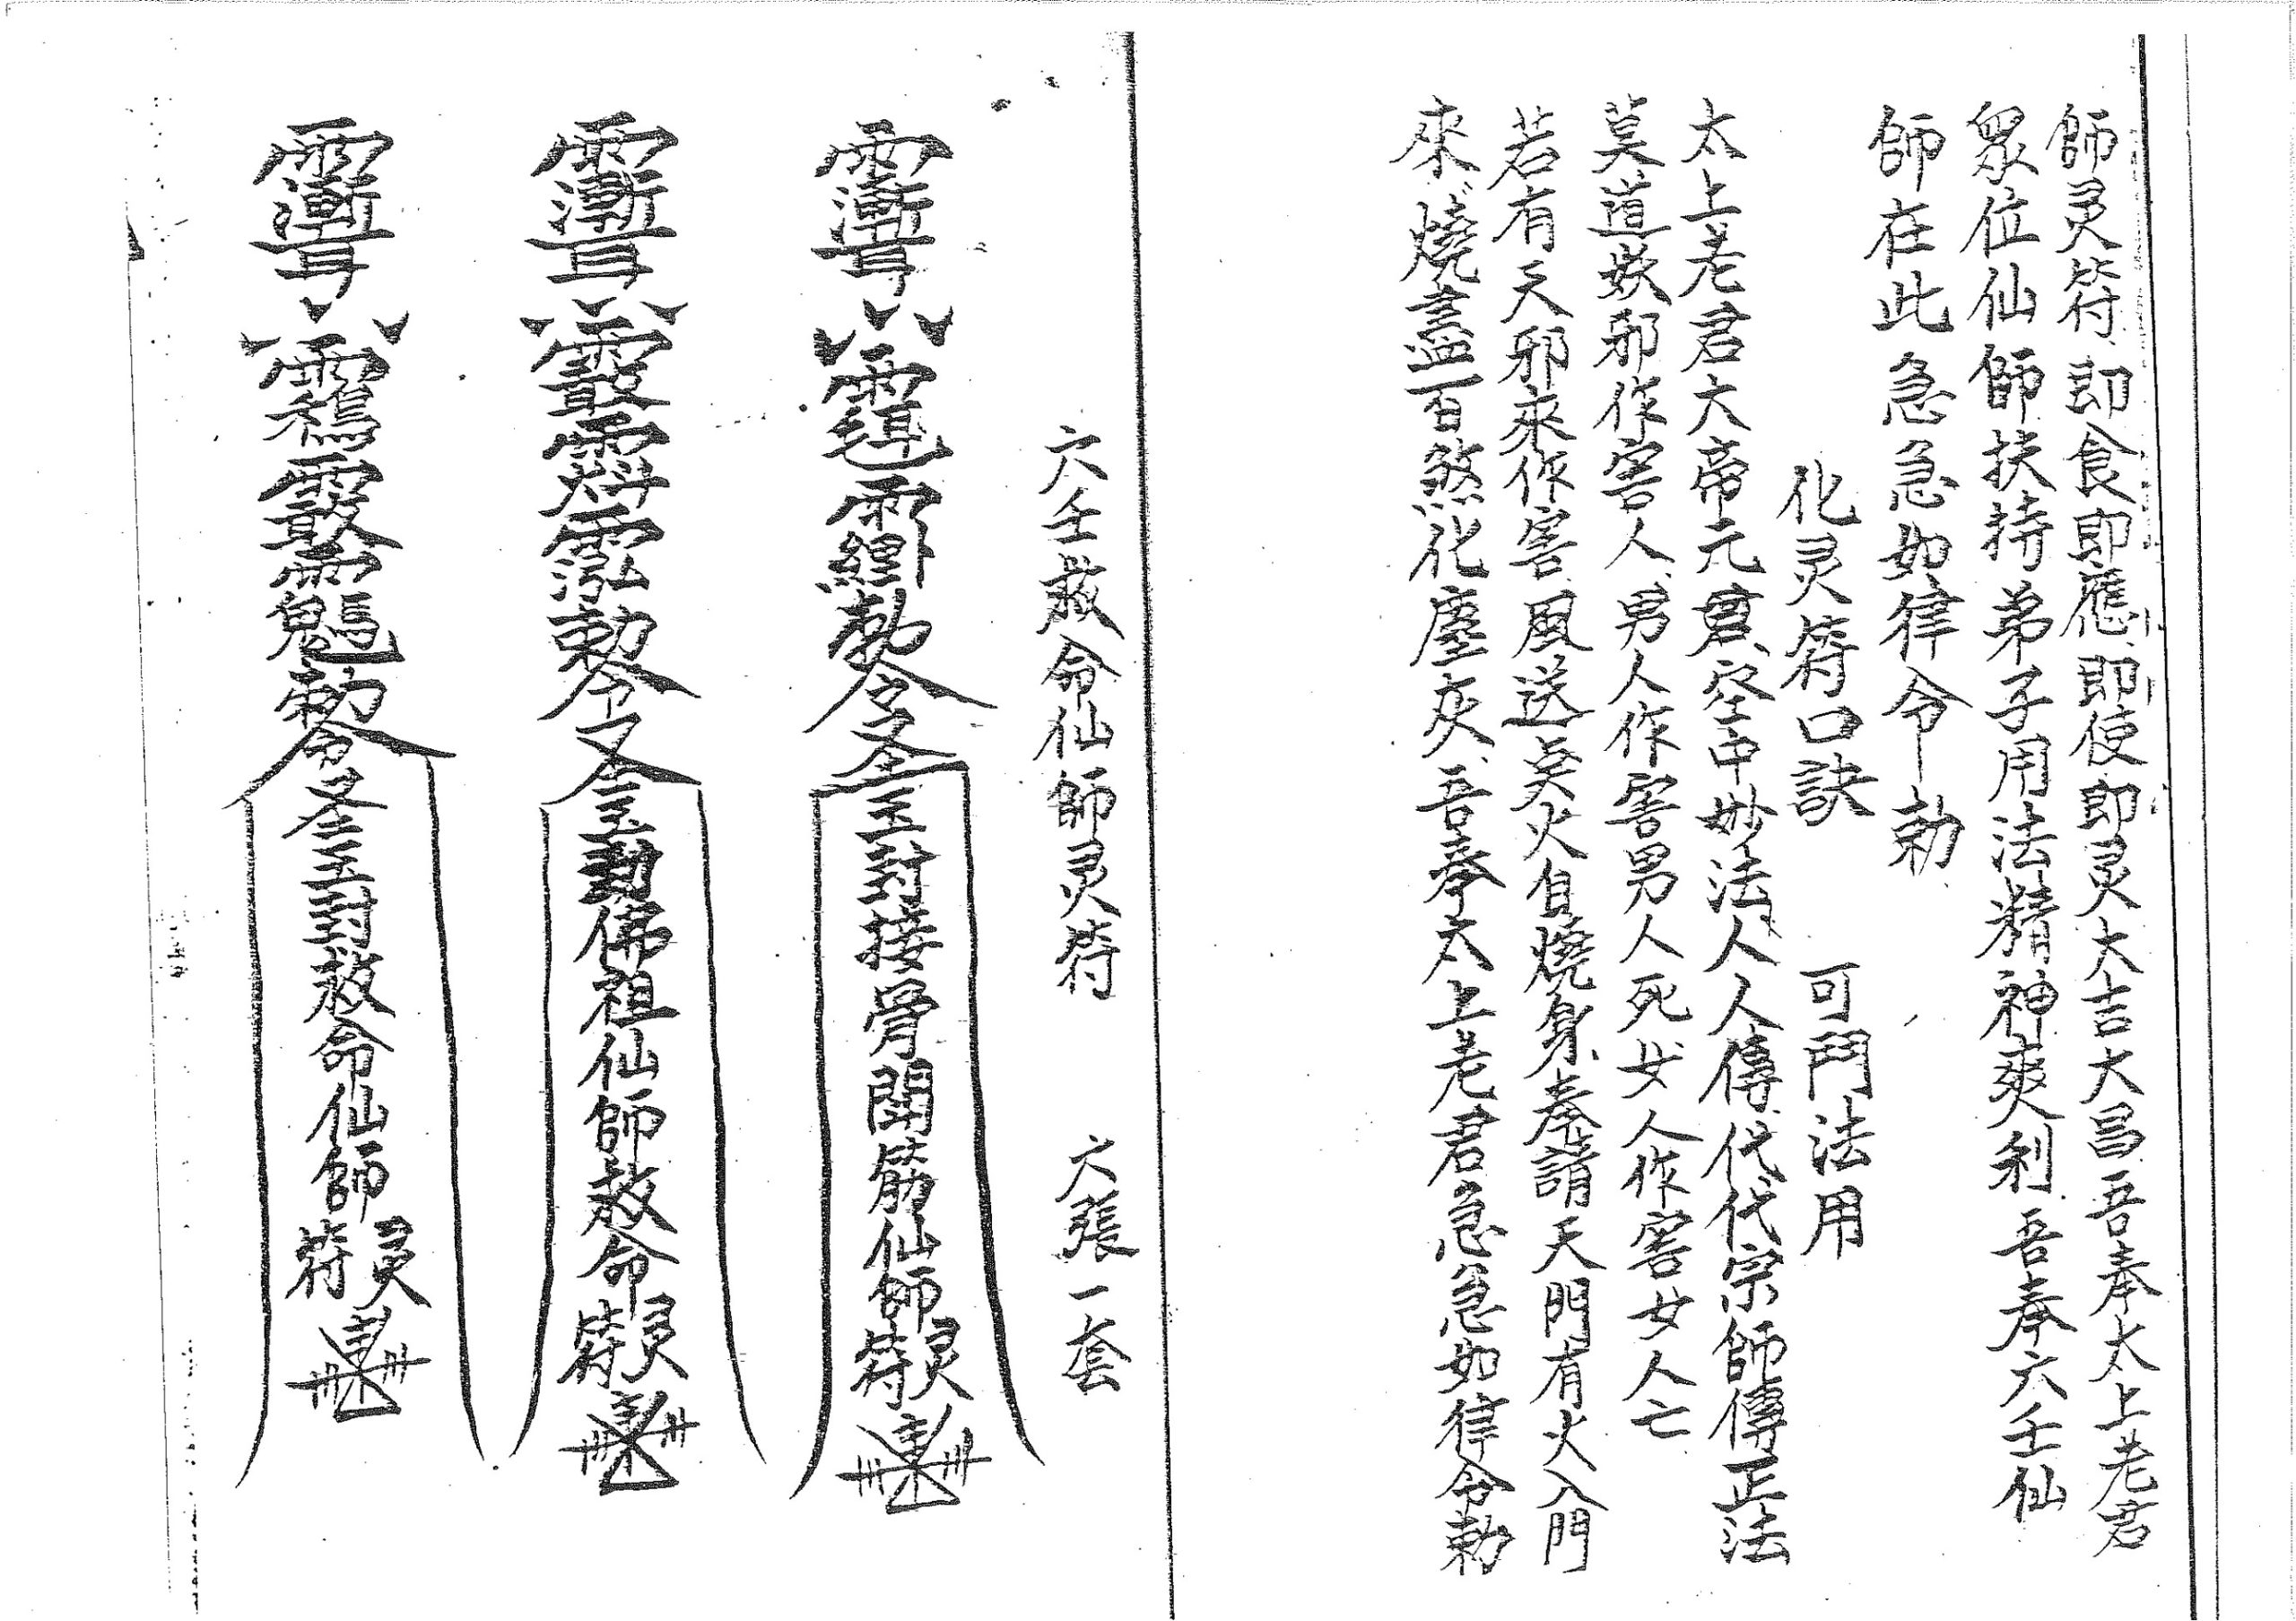 師灵符即食即應即使即灵大吉大昌吾奉太上老君
眾位仙師扶持弟子用法精神爽利吾奉六壬仙
師在此急急如律令勅
化灵符口訣 可鬥法用
太上老君大帝元君空中妙法人人傳代代宗師傳正法
莫道妖邪作害人男人作害男人死女人作害女人亡
若有天邪來作害風送炎火自燒身奉請天門有火入門
來燒盡百煞化塵灰吾奉太上老君急急如律令勅
六壬救命仙師灵符 六張一套
勅令玉封接骨開筋仙師灵符
勅令玉勅佛祖仙師救命灵符
勅令玉封救命仙師灵符